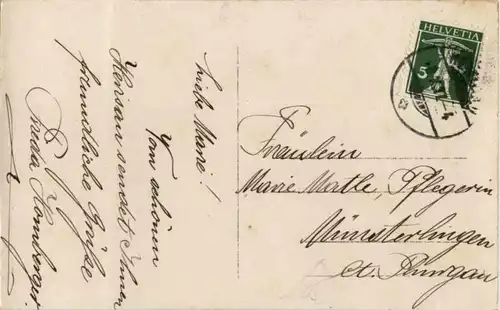 Liebe Marie!
Vom schönen
Herisau sendet Ihnen
freundliche Grüße
Frieda Homberger
HELVETIA
5
Fräulein
Marie Matle, Pflegerin
Münsterlingen
Ct. Thurgau